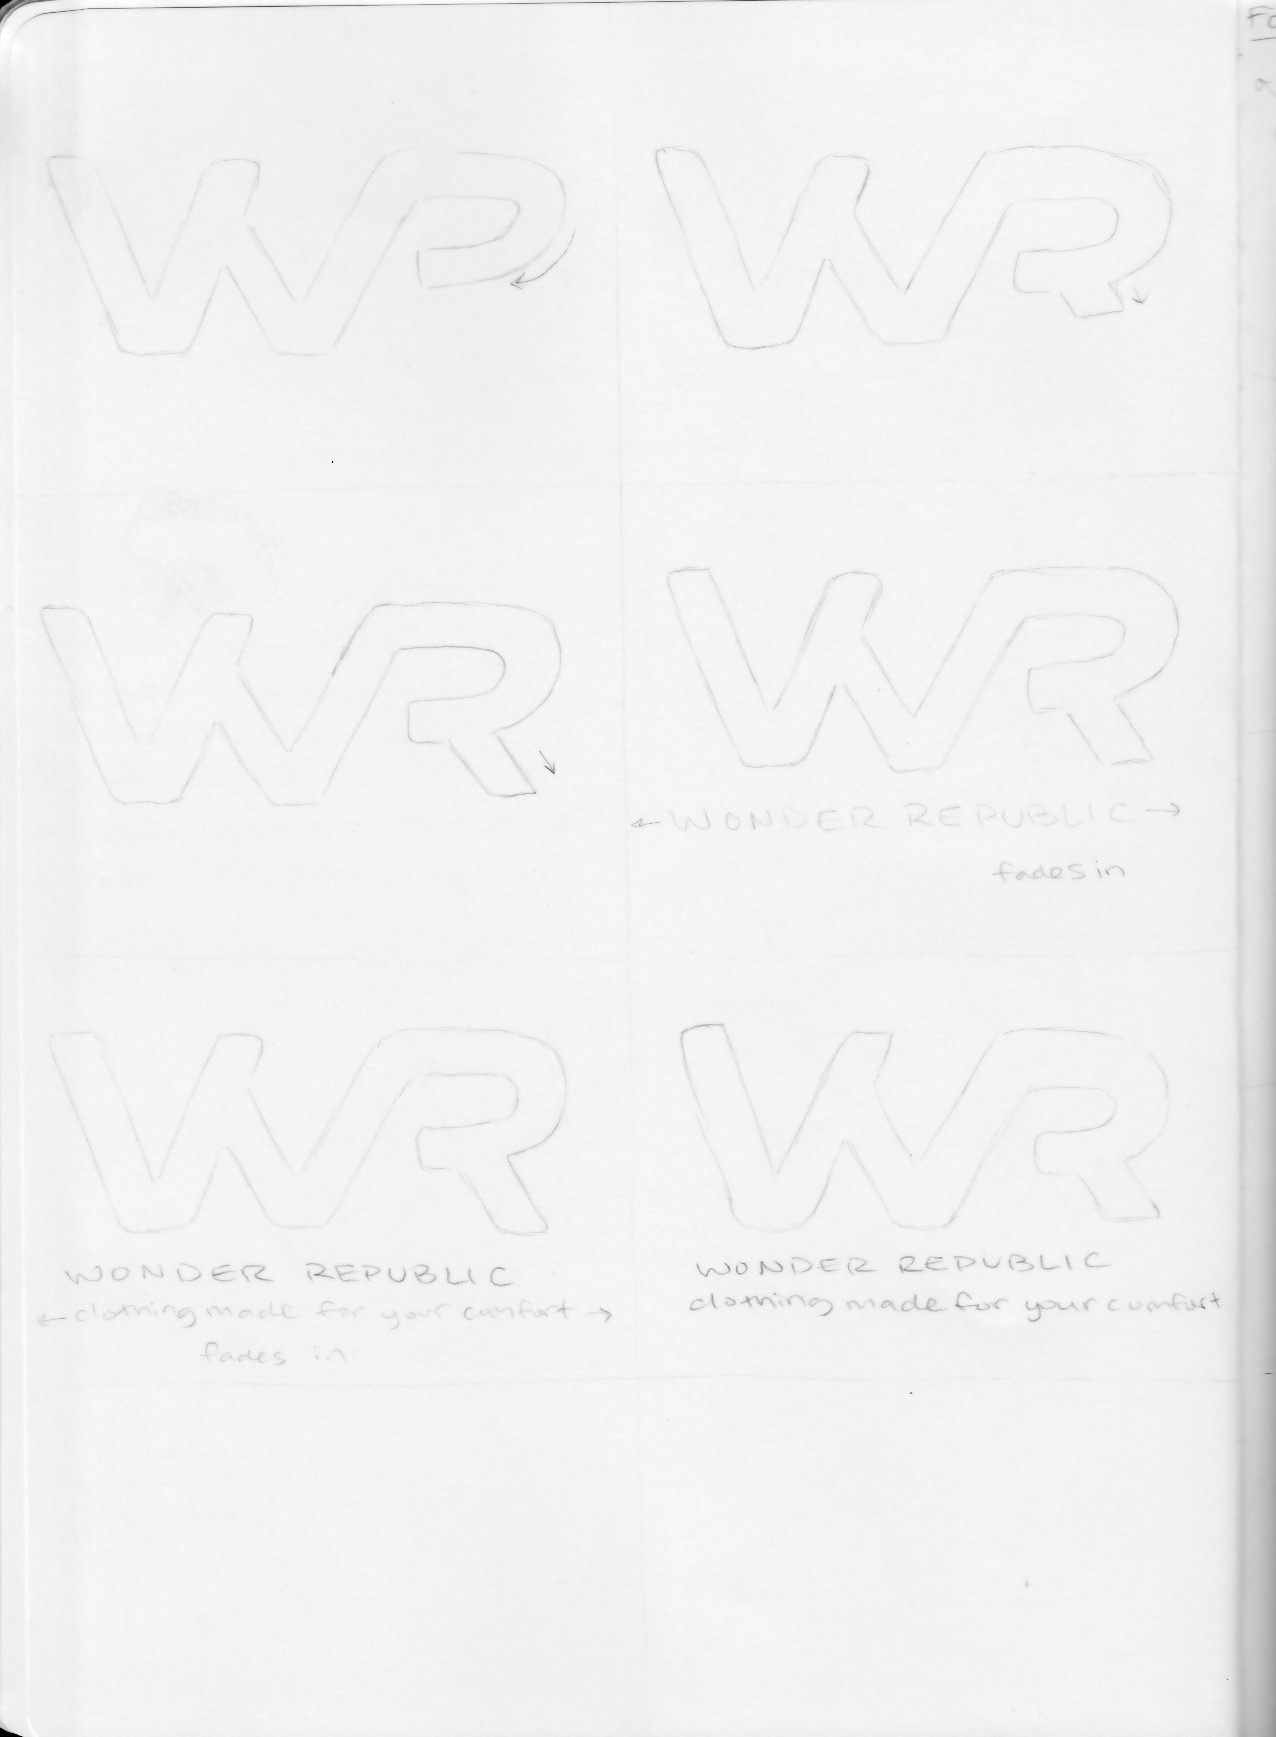 WP
WR
WR
WR
WONDER REPUBLIC
fades in
WR
WONDER REPUBLIC
clothing made for your comfort
fades in
WR
WONDER REPUBLIC
clothing made for your comfort